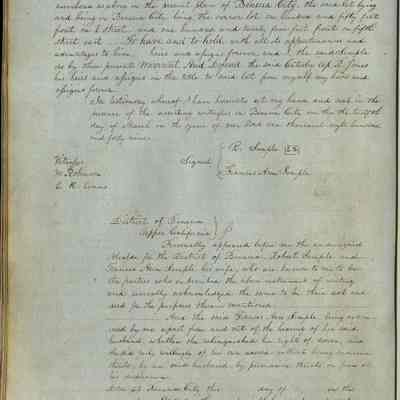 numbers as above in the present plan of Benicia City, the said lot lying
and being in Benicia City being the corner lot one hundred and fifty feet
front on E street and one hundred and twenty five feet front on fifth
street east To have and to hold, with all its appurtenances and
advantages to him heirs and assigns forever, and I the said Semple
do by these presents Warrant and Defend the said Catesby Ap R. Jones
his heirs and assigns in the title to said lot from myself my heirs and
assigns forever.
In testimony whereof I have hereunto set my hand and seal in the
presence of the attesting witnesses in Benicia City on this the
day of March in the year of our Lord one thousand eight hundred
and forty nine
Witnesses
Signed
R. Semple
Frances Ann Semple
District of Benicia
Upper California
Personally appeared before me the undersigned
Alcalde for the District of Benicia, Robert Semple and
Frances Ann Semple his wife, who are known to me to be
the parties who executed the above instrument of writing
and severally acknowledged the same to be their act and
deed for the purposes therein mentioned.
And the said Frances Ann Semple being exam
ined by me apart from and out of the hearing of her said
husband, whether she relinquished her right of dower, and
said willingly of her own accord without being
thereto by her said husband by persuasion threats or fear of
his displeasure.
Benicia City this day of in the